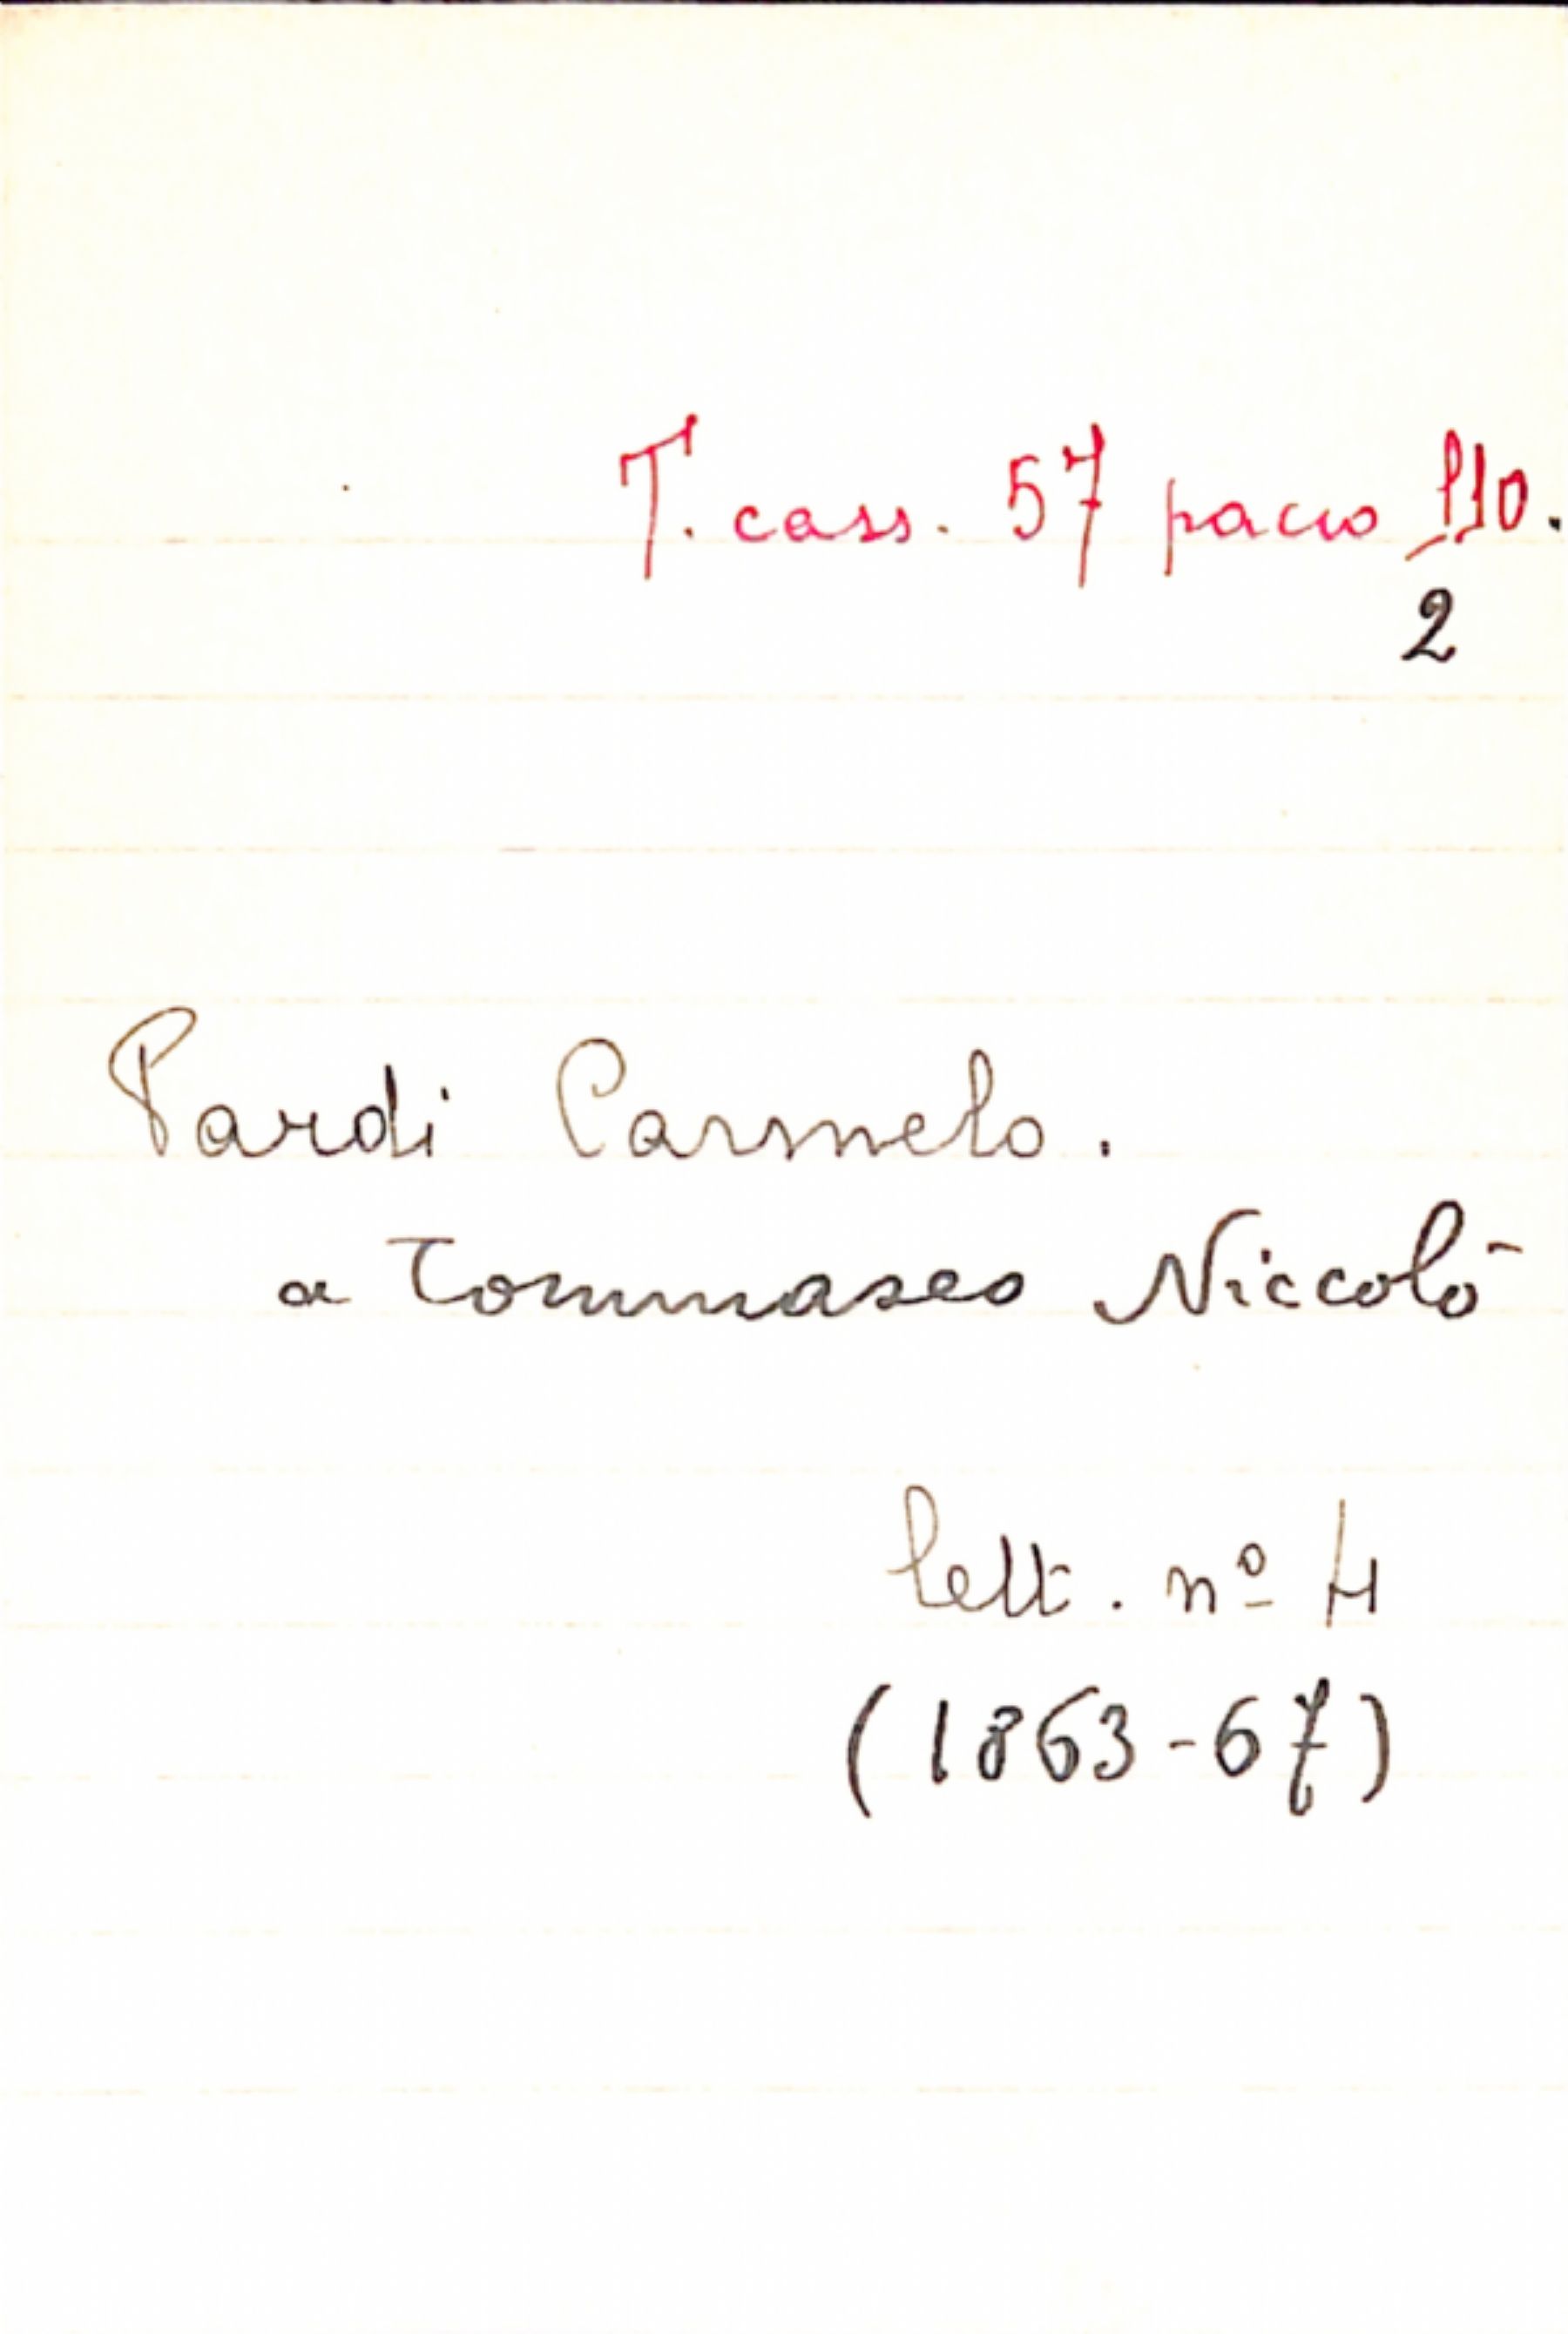 T. cass. 57 pacco 110.
2
Pardi Carmelo.
a Tommaseo Niccolò
lett. nº 4
(1863-67)